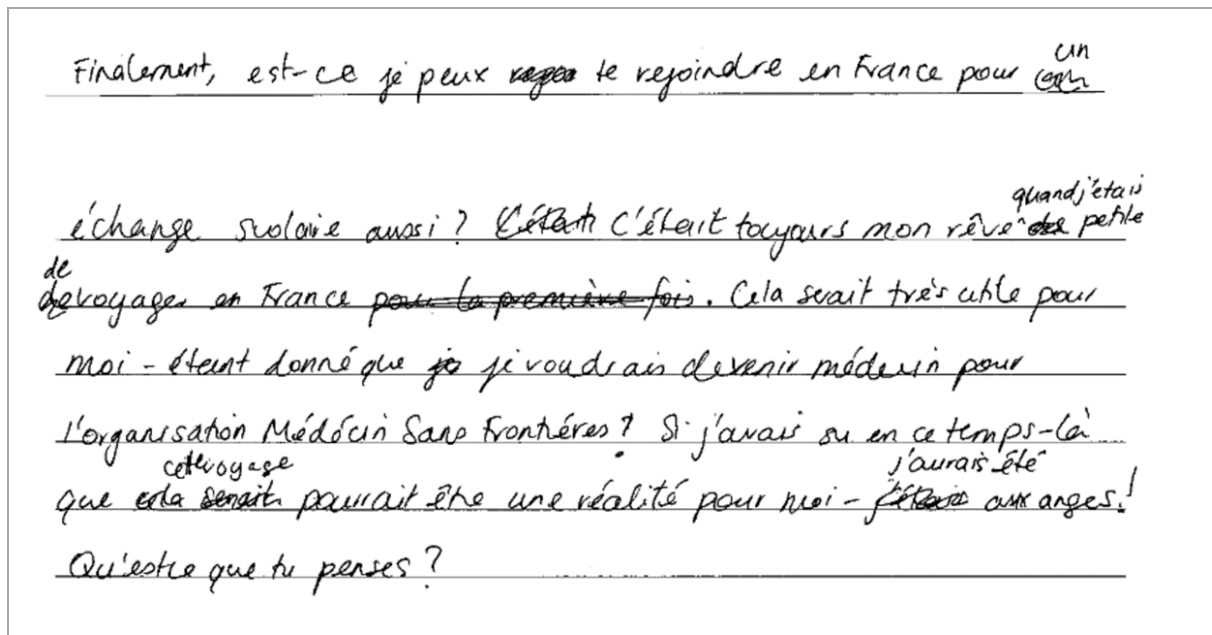 Finalement, est-ce je peux te rejoindre en France pour un
échange scolaire aussi? C'était toujours mon rêve quand j'étais petite
de voyager en France pour la première fois. Cela serait très utile pour
moi - étant donné que je voudrais devenir médecin pour
l'organisation Médócin Sans Frontiéres? Si j'avais su en ce temps-là
que cette voyage pourrait être une réalité pour moi - j'aurais été aux anges!
Qu'estce que tu penses?